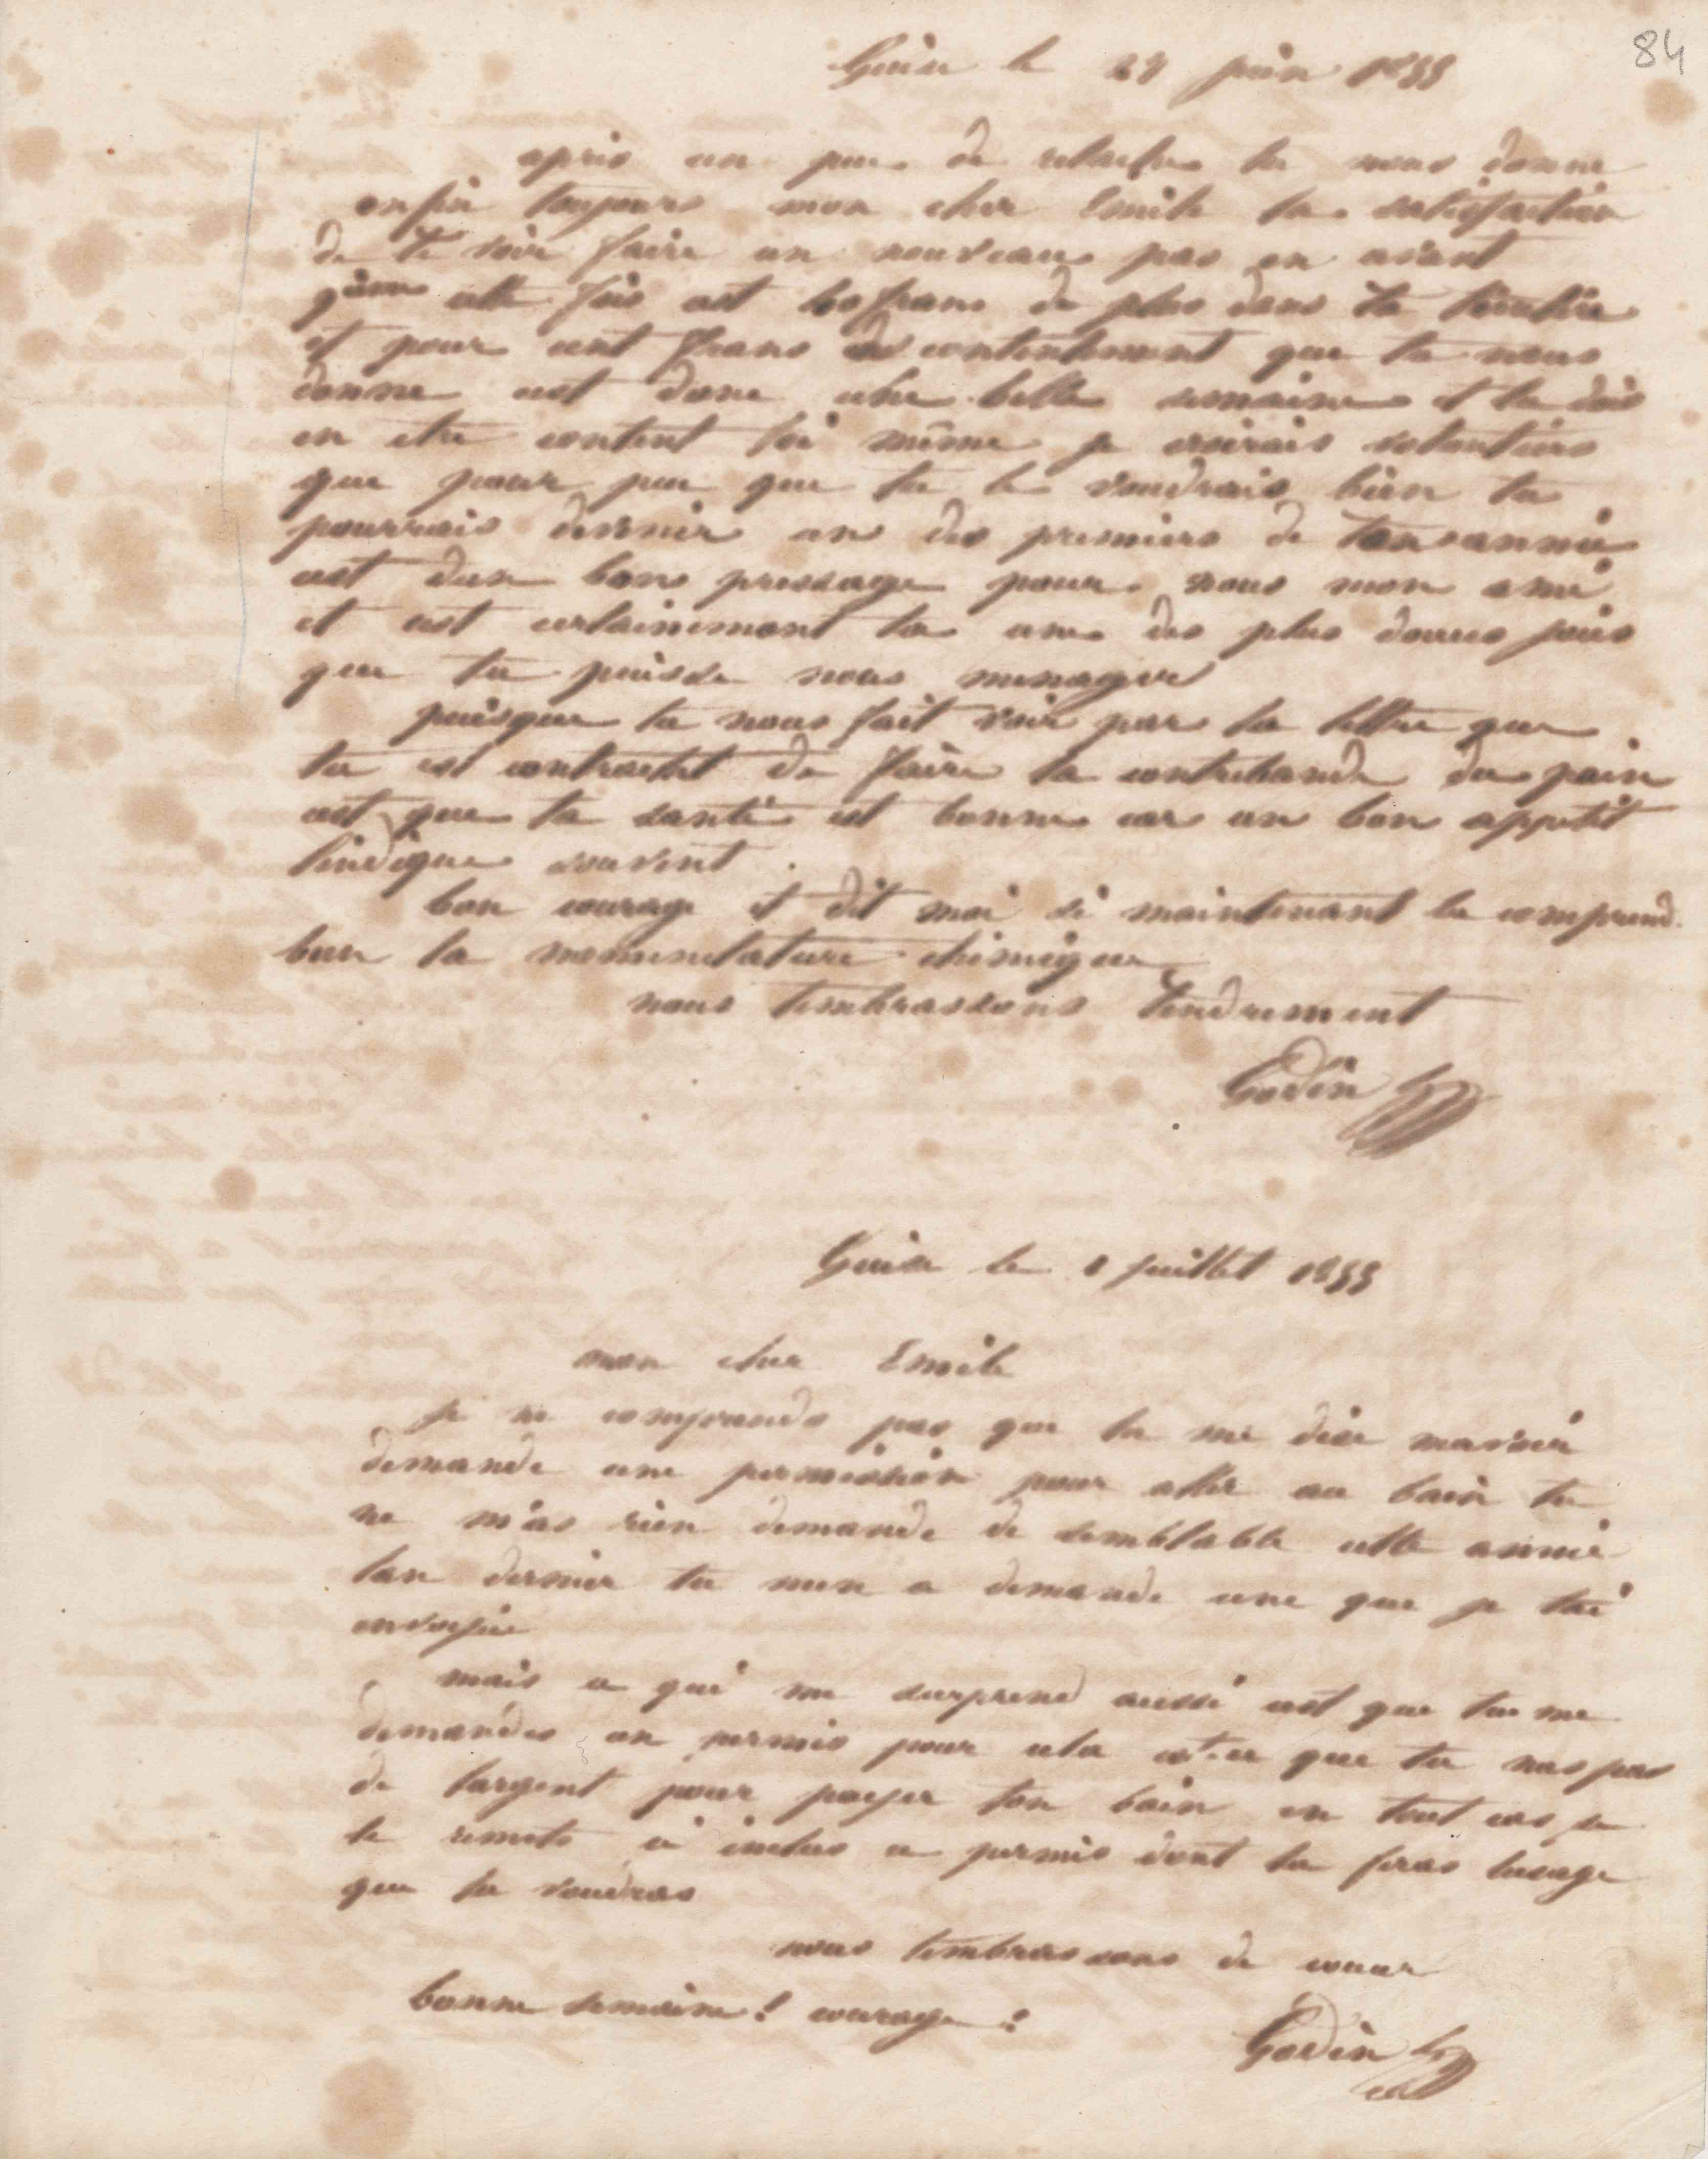 84
Guise le 27 juin 1855
apres un peu de relache tu nous donne
enfin toujours mon cher Emile la satisfaction
de te voir faire un nouveau pas en avant
cette fois cest francs de plus dans ta tirelire
et pour cent francs de contentement que tu nous
donne cest donc une belle semaine et tu dois
en etre content toi même je croirais volontiers
que pour peu que tu le voudrais bien tu
pourrais devenir un des premiers de ton année
cest dun bon pressage pour nous mon ami
et cest certainement la une des plus douces joies
que tu puisse nous menager
puisque tu nous fait voir par ta lettre que
tu est contraint de faire la contrebande du pain
cest que ta santé est bonne car un bon appetit
lindique souvent
bon courage et dit moi si maintenant tu comprend
bien la nomenclature chimique
nous tembrassons tendrement
Godin
Guise le 1 juillet 1855
mon cher Emile
je ne comprends pas que tu me dise mavoir
demandé une permission pour aller au bain tu
ne m'as rien demandé de semblable cette année
lan dernier tu men a demandé une que je tai
envoyée
mais ce qui me surprend aussi cest que tu me
demandes un permis pour cela est-ce que tu nas pas
de largent pour payer ton bain en tout cas je
te remets ci inclus ce permis dont tu feras lusage
que tu voudras
nous tembrassons de coeur
bonne semaine ! courage !
Godin